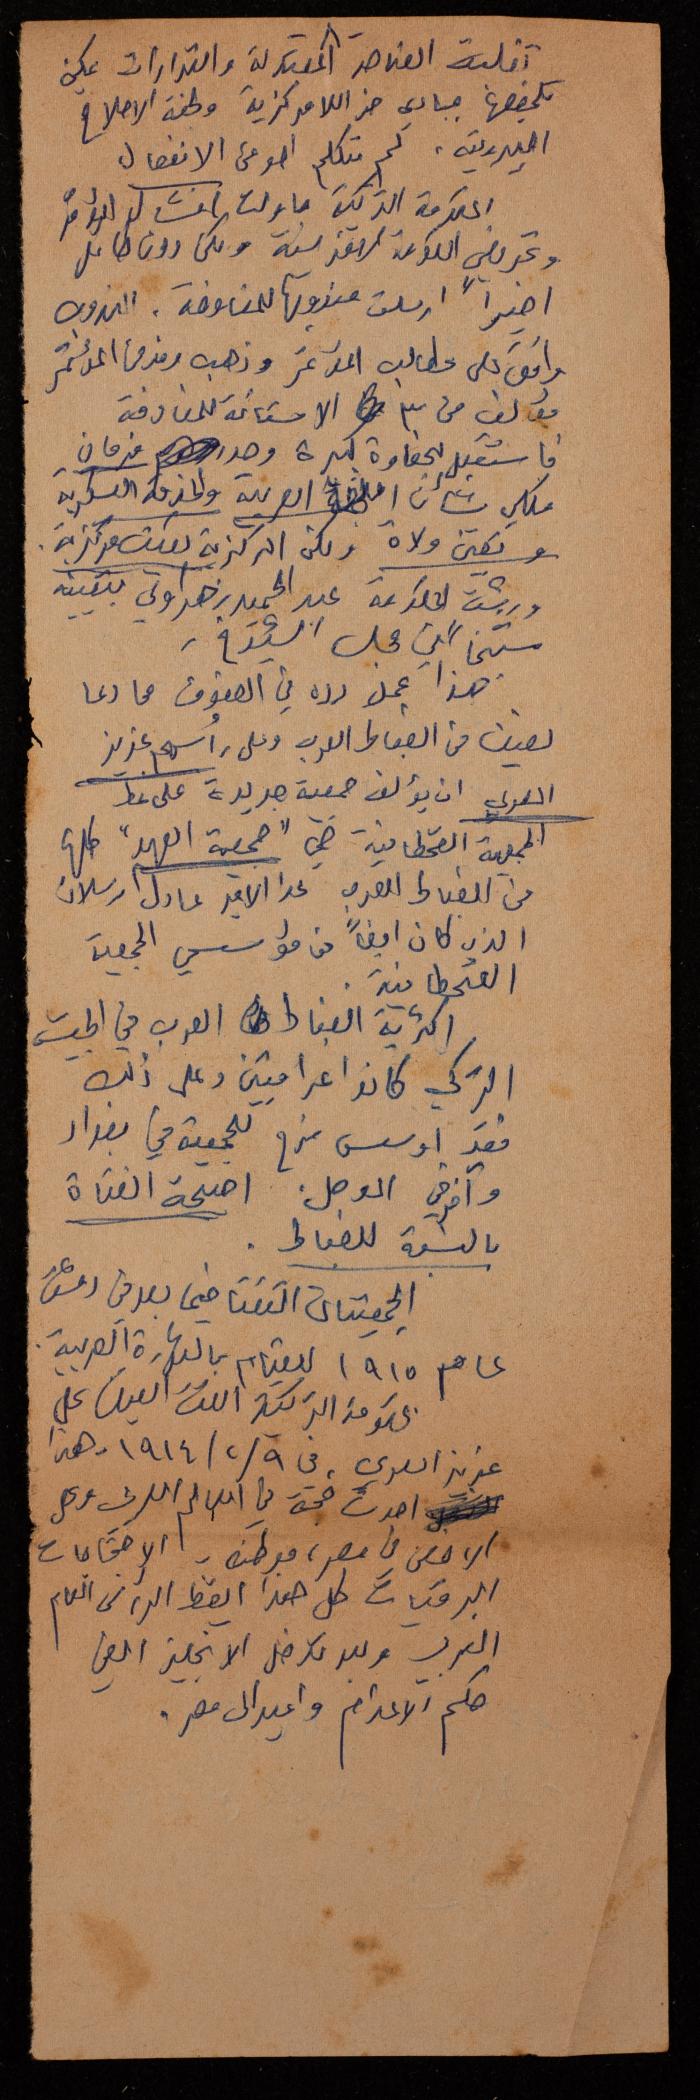 أقلية العناصر المعتدلة والقرارات يمكن
تلخيصها بمبادئ حزب اللامركزية ولجنة الاصلاح
البيروتية، لم يتكلم احد عن الانفصال
الحكومة التركية حاولت افشال المؤتمر
وتحريض الحكومة الافرنسية ولكن دون طائل
اخيراً ارسلت مندوبها للمفاوضة. المندوب
وافق على مطالب المؤتمر وذهب وفد من المؤتمر
مؤلف من ٣ الاستانة للمفاوضة
فاستقبل بحفاوة كبيرة وصدر فرمان
ملكي بشأن اللغة العربية والخدمة العسكرية
وتعيين ولاة ولكن المركزية بقيت مركزية.
ورشت الحكومة عبد الحميد زهراوي بتعيينه
شيخاً في مجلس الشيوخ.
هذا عمل رده في الصفوف مما دعا
لفيف من الضباط العرب وعلى رأسهم عزيز
المصري ان يؤلف جمعية جديدة على نمط
الجمعية القحطانية هي "جمعية العهد" كلها
من الضباط العرب عدا الامير عادل ارسلان
الذي كان ايضاً من مؤسسي الجمعية
القحطانية.
اكثرية الضباط العرب في الجيش
التركي كانوا عراقيين وعلى ذلك
فقد اوسس فرع للجمعية في بغداد
وآخر في الموصل. اصبحت الفتاة
بالنسبة للضباط.
الجمعيتان التقتا فيما بعد في دمشق
عام ١٩١٥ للقيام بالثورة العربية.
الحكومة التركية القت القبض على
عزيز المصري، في ٩/٢/١٩١٤. هذا
احدث ضجة في العالم العربي وعلى
الاخص في مصر، موطنه. الاحتجاجات
البرقيات كل هذا ايقظ الرأي العام
العربي وبعد تدخل الانجليز الغي
حكم الاعدام واعيد الى مصر.